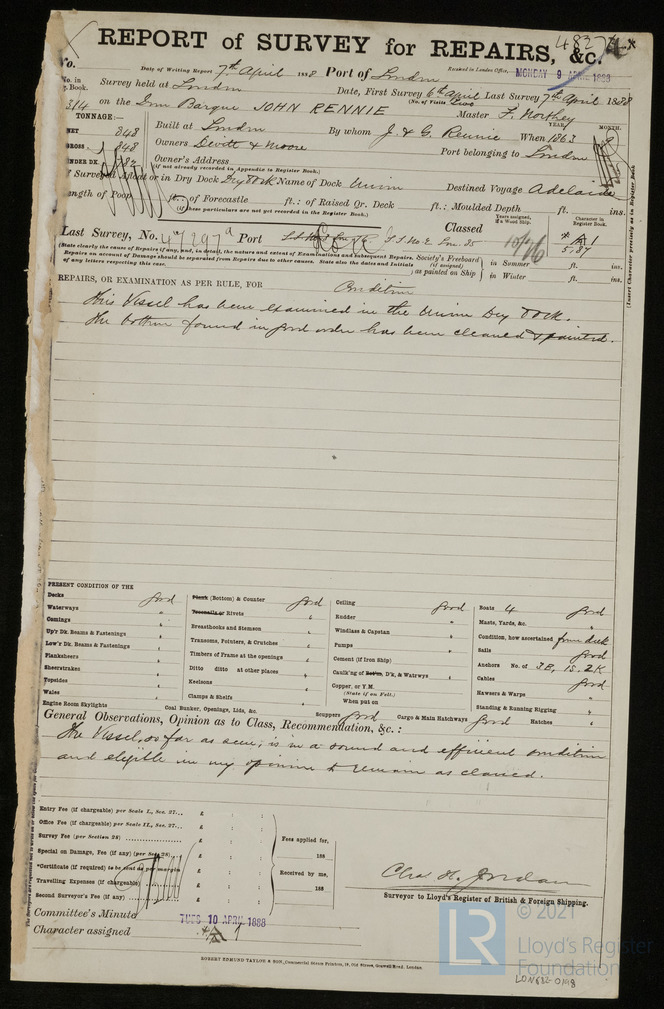 48274
REPORT of SURVEY for REPAIRS, &c.
No.
Date of Writing Report 7th April 1888 Port of London Received in London Office, MONDAY 9 APRIL 1888
No. in Survey held at London Date, First Survey 6th April Last Survey 7th April 1888
g. Book. (No. of Visits Two)
314 on the Iron Barque JOHN RENNIE Master F. Northey
TONNAGE:— YEAR. MONTH.
NET 848 Built at London By whom J. & G. Rennie When 1863
GROSS 848 Owners Devitt & Moore Port belonging to London
UNDER DK. Owner's Address
(if not already recorded in Appendix to Register Book.)
If Surveyed Afloat or in Dry Dock Dry Dock Name of Dock Union Destined Voyage Adelaide
Length of Poop ft.: of Forecastle ft.: of Raised Qr. Deck ft.: Moulded Depth ft. ins.
(if these particulars are not yet recorded in the Register Book.)
Years assigned, if a Wood Ship. Character in Register Book.
Last Survey, No. Port Classed A 1
5,87
(State clearly the cause of Repairs if any, and, in detail, the nature and extent of Examinations and subsequent Repairs. Society's Freeboard (if assigned) in Summer ft. ins.
Repairs on account of Damage should be separated from Repairs due to other causes. State also the dates and Initials as painted on Ship in Winter ft. ins.
of any letters respecting this case.
REPAIRS, OR EXAMINATION AS PER RULE, FOR Condition
This Vessel has been examined in the Union Dry Dock.
The bottom found in good order has been cleaned & painted.
PRESENT CONDITION OF THE
Decks good Plank (Bottom) & Counter good Ceiling good Boats 4 good
Waterways " Treenails or Rivets " Rudder " Masts, Yards, &c. "
Comings " Breasthooks and Stemson " Windlass & Capstan " Condition, how ascertained from deck
Up'r Dk. Beams & Fastenings " Transoms, Pointers, & Crutches " Pumps " Sails good
Low'r Dk. Beams & Fastenings " Timbers of Frame at the openings Cement (if Iron Ship) Anchors No. of 3B, 1S, 2K
Planksheers Ditto ditto at other places " Caulk'ng of Bot'm, D'k, & Watrwys " Cables good
Sheerstrakes Keelsons " Copper, or Y.M. Hawsers & Warps "
Topsides (State if on Felt.)
Wales Clamps & Shelfs When put on Standing & Running Rigging "
Engine Room Skylights Coal Bunker, Openings, Lids, &c. Scuppers good Cargo & Main Hatchways good Hatches "
General Observations, Opinion as to Class, Recommendation, &c. :
The Vessel, so far as seen, is in a sound and efficient condition
and eligible in my opinion to remain as classed.
Entry Fee (if chargeable) per Scale I., Sec. 27... £ : :
Office Fee (if chargeable) per Scale II., Sec. 27... £ : :
Survey Fee (per Section 28) £ : : Fees applied for,
Special on Damage, Fee (if any) (per Sec. 28) £ : : 188
*Certificate (if required) to be sent as per margin £ : : Received by me,
Travelling Expenses (if chargeable) £ : : 188
Second Surveyor's Fee (if any) £ : :
Chas H. Jordan
Surveyor to Lloyd's Register of British & Foreign Shipping.
Committee's Minute TUES 10 APRIL 1888
Character assigned A 1
ROBERT EDMUND TAYLOR & SON, Commercial Steam Printers, 19, Old Street, Goswell Road, London.
LR
© 2021
Lloyd's Register
Foundation
LON682-0198